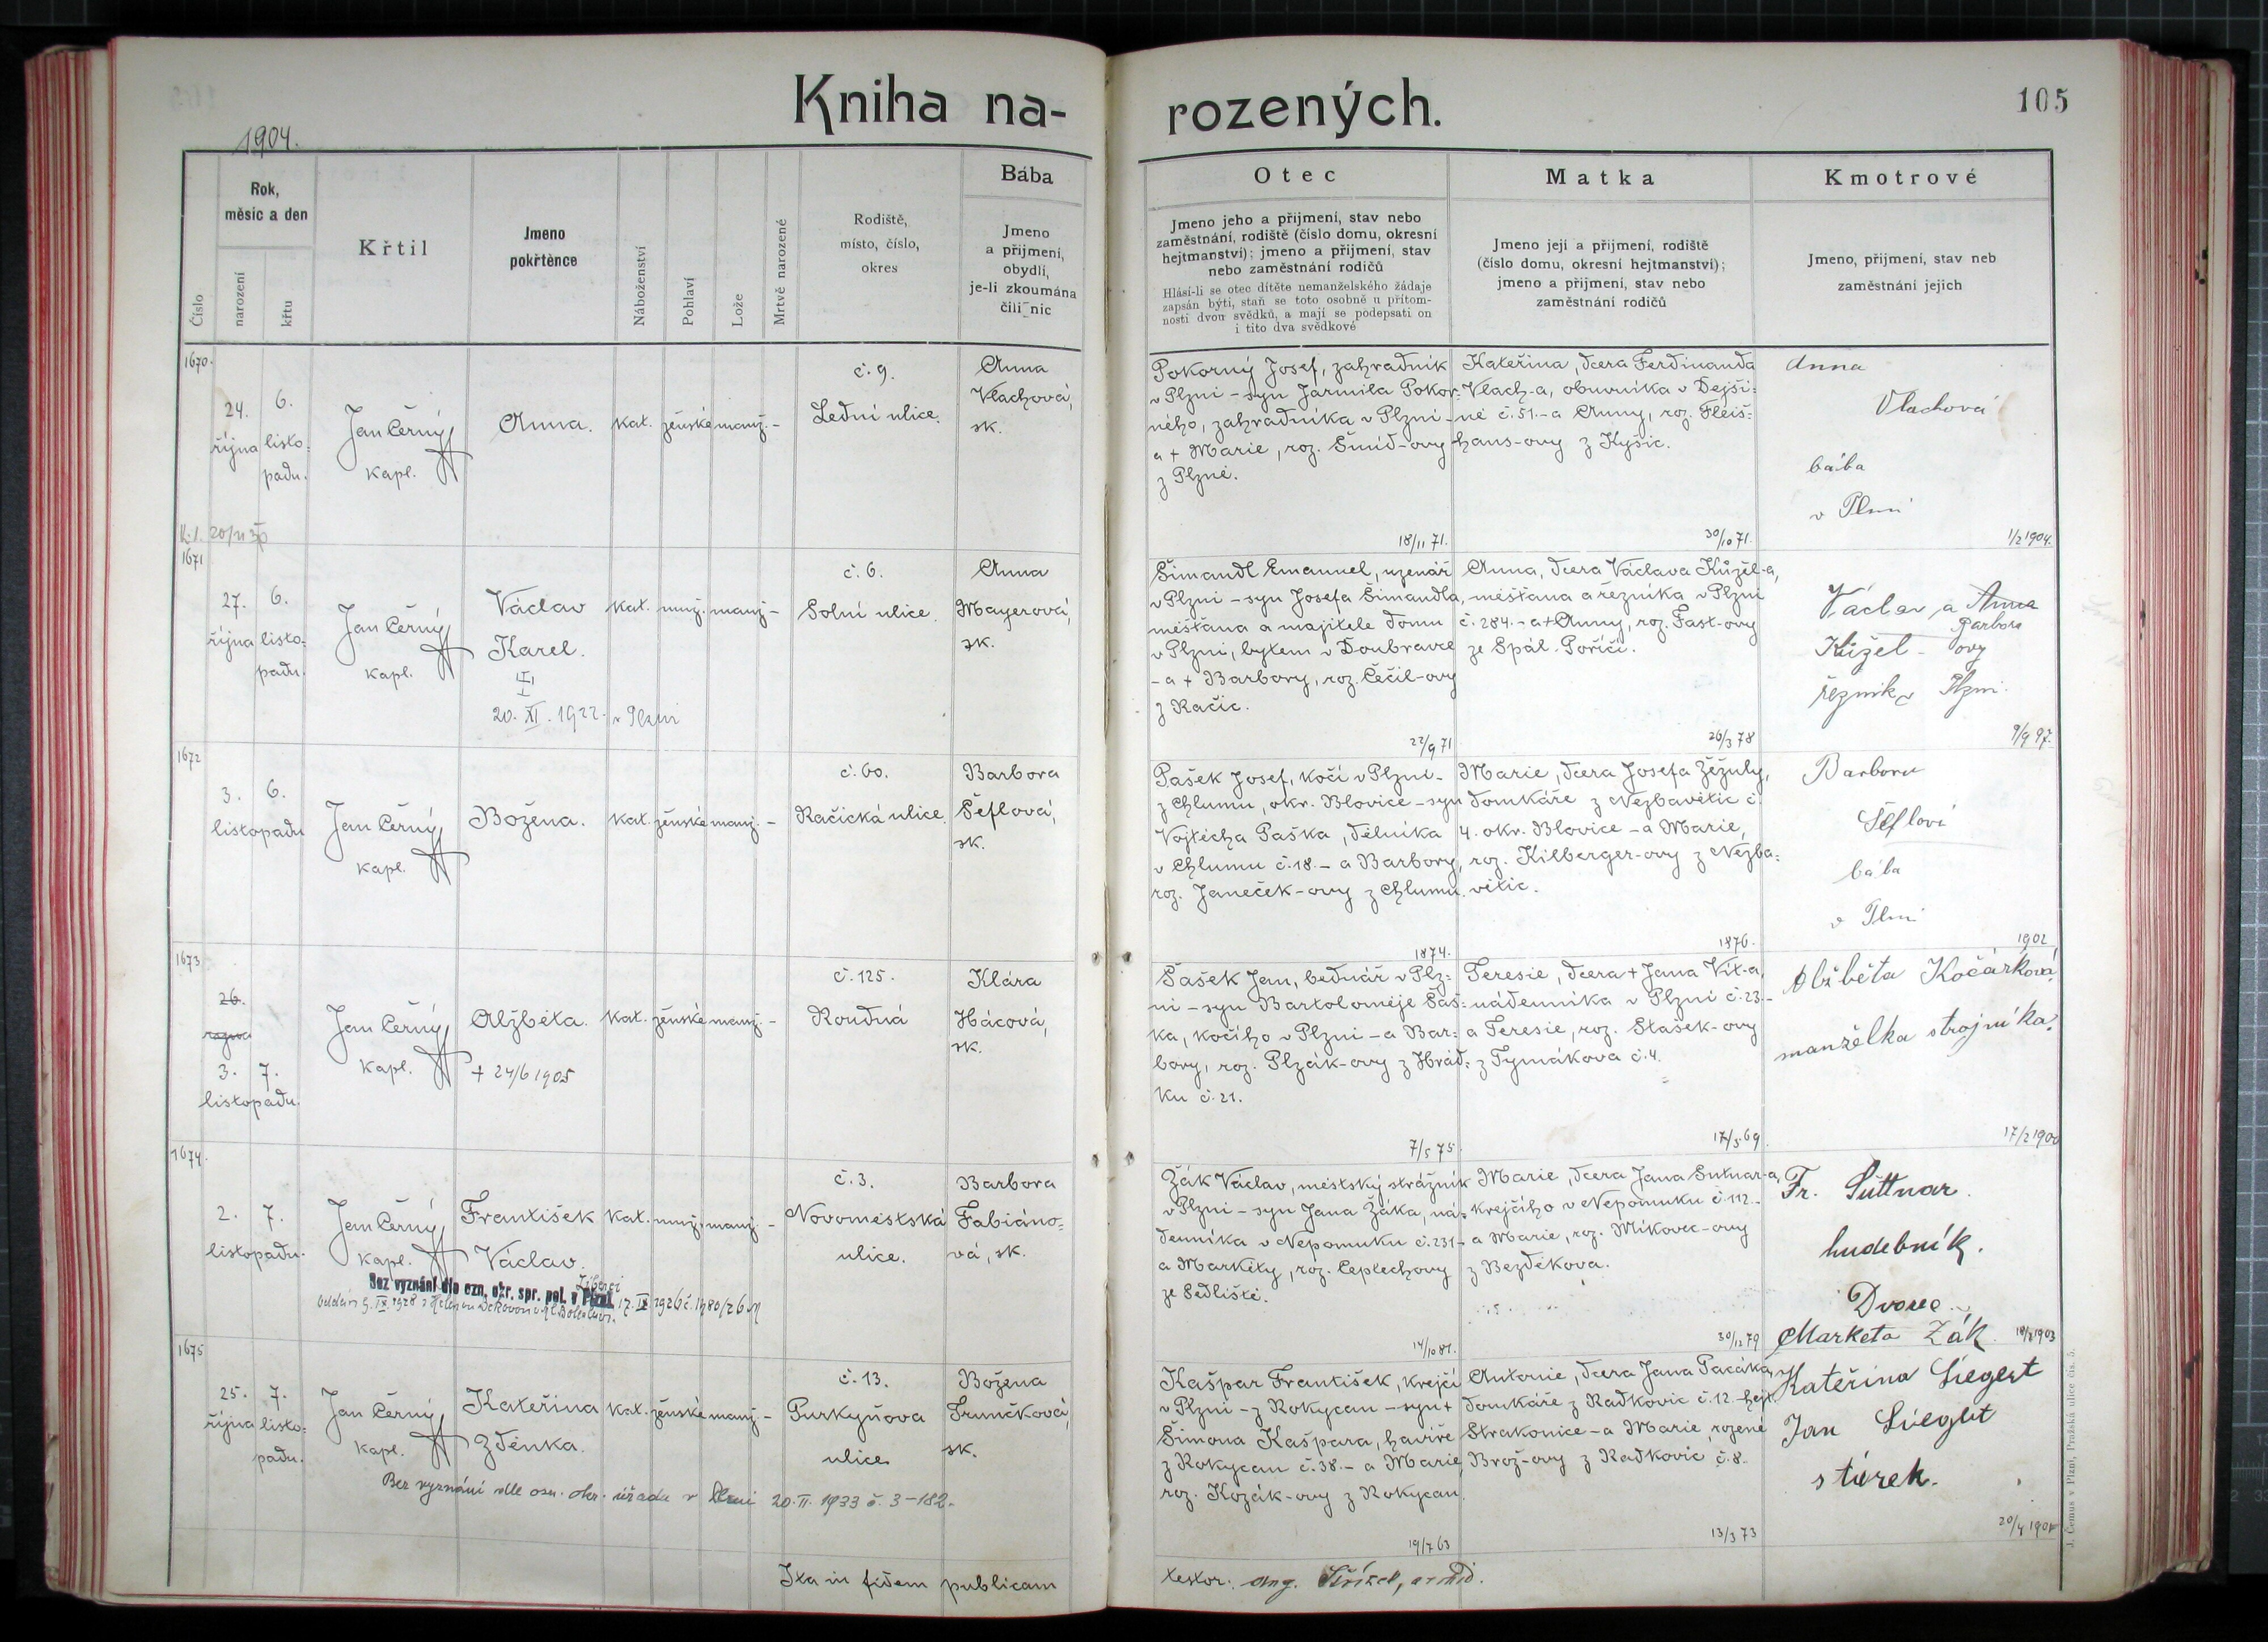 Kniha na-
rozených.
105
1904.
Číslo
Rok,
měsíc a den
narození
křtu
Křtil
Jmeno
pokřtěnce
Náboženství
Pohlaví
Lože
Mrtvě narozené
Rodiště,
místo, číslo,
okres
Bába
Jmeno
a přijmení,
obydlí,
je-li zkoumána
čili nic
Otec
Jmeno jeho a přijmení, stav nebo
zaměstnání, rodiště (číslo domu, okresní
hejtmanství); jmeno a přijmení, stav
nebo zaměstnání rodičů
Hlásí-li se otec dítěte nemanželského žádaje
zapsán býti, staň se toto osobně u přítom-
nosti dvou svědků, a mají se podepsati on
i tito dva svědkové
Matka
Jmeno její a přijmení, rodiště
(číslo domu, okresní hejtmanství);
jmeno a přijmení, stav nebo
zaměstnání rodičů
Kmotrové
Jmeno, přijmení, stav neb
zaměstnání jejich
1670.
24.
října
6.
listo:
padu.
Jan Černý
kapl.
Anna.
kat.
ženské
manž.
-
č. 9.
Lední ulice.
Anna
Vlachová,
sk.
Pokorný Josef, zahradník
v Plzni - syn Jarmila Pokor-
ného, zahradníka v Plzni -
a + Marie, roz. Šmíd-ovy
z Plzně.
18/11 71.
Kateřina, dcera Ferdinanda
Vlach-a, obuvníka v Dejši:
né č. 51. - a Anny, roz. Fleis:
hans-ovy z Kyšic.
30/10 71.
Anna
Vlachová
bába
v Plzni
1/2 1904.
1671
27.
října
6.
listo:
padu.
Jan Černý
kapl.
Václav
Karel.
20. XI. 1922. v Plzni
kat.
muž.
manž.
-
č. 6.
Solní ulice.
Anna
Mayerová,
sk.
Šimandl Emanuel, uzenář
v Plzni - syn Josefa Šimandla,
měšťana a majitele domu
v Plzni, bytem v Doubravce
- a + Barbory, roz. Čečil-ovy
z Račic.
22/9 71
Anna, dcera Václava Kůžel-a,
měšťana a řezníka v Plzni
č. 284. - a + Anny, roz. Fast-ovy
ze Spál. Poříčí.
26/3 78
Václav a Anna
Barbora
Kůžel - ovy
řezník v Plzni.
9/9 97.
1672
3.
6.
listopadu
Jan Černý
kapl.
Božena.
kat.
ženské
manž.
-
č. 60.
Račická ulice.
Barbora
Šeflová,
sk.
Pašek Josef, kočí v Plzni -
z Chlumu, okr. Blovice - syn
Vojtěcha Paška, dělníka
v Chlumu č. 18. - a Barbory,
roz. Janeček-ovy z Chlumu.
1874.
Marie, dcera Josefa Žežuly,
domkáře z Nezbavětic č.
4. okr. Blovice - a Marie,
roz. Kilberger-ovy z Nezba:
větic.
1876.
Barbora
Šeflová
bába
v Plzni
1902
1673
26.
října
3.
7.
listopadu.
Jan Černý
kapl.
Alžběta.
+ 24/6 1905
kat.
ženské
manž.
-
č. 125.
Roudná
Klára
Hácová,
sk.
Šašek Jan, bednář v Plz:
ni - syn Bartoloměje Šaš:
ka, kočího v Plzni - a Bar:
bory, roz. Plzák-ovy z Hrád:
ku č. 21.
7/5 75
Teresie, dcera + Jana Vít-a,
nádenníka v Plzni č. 23. -
a Teresie, roz. Stašek-ovy
z Tymákova č. 4.
17/5 69.
Alžběta Kočárková
manželka strojníka.
17/2 1900
1674.
2.
7.
listopadu.
Jan Černý
kapl.
František
Václav.
kat.
muž.
manž.
-
Bez vyznání dle ozn. okr. spr. pol. v Plzni
Liberci
17. IX 1926 č.
č. 3.
Novoměstská
ulice.
Barbora
Fabiáno=
vá, sk.
Žák Václav, městský strážník
v Plzni - syn Jana Žáka, ná:
denníka v Nepomuku č. 231 -
a Markéty, roz. Ceplechovy
ze Sedliště.
14/10 81.
Marie, dcera Jana Sutnar-a,
krejčího v Nepomuku č. 112. -
a Marie, roz. Míkovec-ovy
z Bezděkova.
30/12 79
Fr. Suttnar.
hudebník.
Dvorec.
Marketa Žák.
1903
1675
25.
října
7.
listo:
padu.
Jan Černý
kapl.
Kateřina
Zdenka.
kat.
ženské
manž.
-
Bez vyznání dle osn. okr. úřadu v Plzni 20. II. 1933 č. 3-182.
č. 13.
Purkyňova
ulice
Božena
Trunčková,
sk.
Kašpar František, krejčí
v Plzni - z Rokycan - syn +
Šimona Kašpara, havíře
z Rokycan č. 38. - a Marie,
roz. Kozák-ovy z Rokycan.
19/7 63
Antonie, dcera Jana Pacáka,
domkáře z Radkovic č. 12. hejt.
Strakonice - a Marie, rozené
Brož-ovy z Radkovic č. 8.
13/3 73
Kateřina Siegert
Jan Siegert
stúrek.
20/4 1901
Ita in fidem publicam
testor:
J. Čemus v Plzni, Pražská ulice čís. 5.